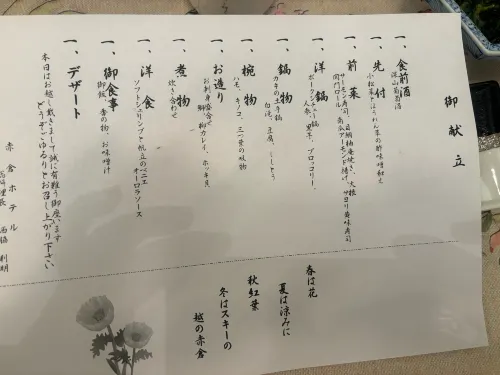 御献立
一、食前酒
深山葡萄酒
一、先付
小松菜とほうれん草の酢味噌和え
一、前菜
サーモン寿司、目鯛柚庵焼き、大根
関門フール、南瓜アーモンド揚げ、サヨリ黄味寿司
一、洋鍋
ポークシチュー鍋
人参、里芋、ブロッコリー、
一、鍋物
カキの土手鍋
白滝、豆腐、ししとう
一、椀物
ハモ、キノコ、三つ葉の吸物
一、お造り
お刺身盛合せ
鯛、カレイ、ホッキ貝
一、煮物
炊き合わせ
一、洋食
ソフトシェリシュリンプと帆立のベニエ
オーロラソース
一、御食事
御飯、香の物、お味噌汁
一、デザート
本日はお越し戴きまして誠に有難う御座います
どうぞごゆるりとお召し上がり下さい
赤倉ホテル
調理長 西脇 利明
春は花
夏は涼みに
秋紅葉
冬はスキーの
越の赤倉